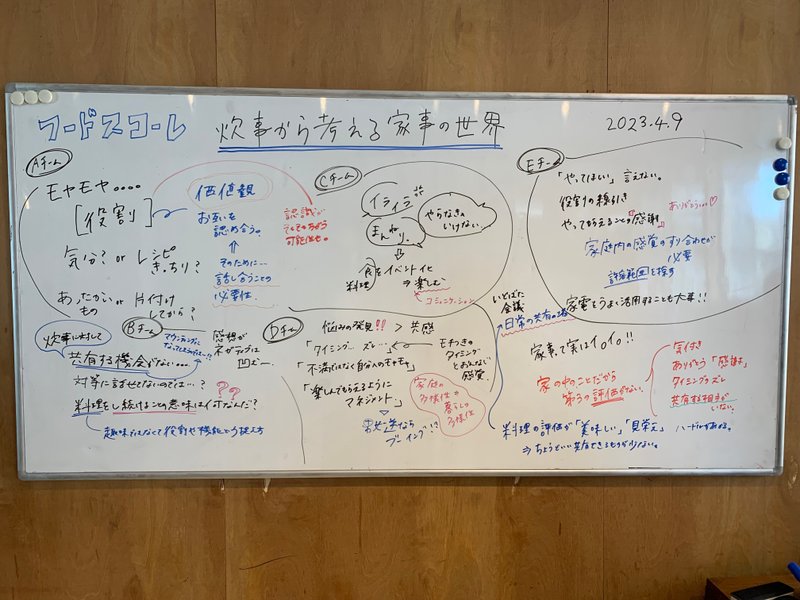 フードスコーレ 炊事から考える家事の世界 2023.4.9
Aチーム
モヤモヤ....
[役割]
気分? or レシピきっちり?
あったかいもの or 片付けしてから?
価値観
お互いを
認め合う。
⇑
そのために…
話し合うことの
必要性.
認識が
可能性も。
Cチーム
イライラ
まんねり.
やらなきゃ
いけない
⇩
食をイベント化
料理 ⇒ 楽しむ
コミュニケーション
Eチーム
「やってほしい」言えない。
役割の線引き
やってもらえることの「感謝」
ありがとう…♡
家庭内の感覚のすり合わせが
必要
許容範囲を探す
家電をうまく活用することも大事!!
Bチーム
炊事に対して
共有する機会がない…
マウンティングに
感想が
ネガティブには
凹む…
対等に話せてないのでは…?
料理をし続けることの意味は何なんだ? ??
趣味ではなくて役割や機能と捉え方
Dチーム
悩みの発見!! > 共感
「タイミング… ズレ…」
モチつきの
タイミング
と
感覚
「不満ではなく自分へのモヤモヤ」
「楽しんでもらえるように
マネジメント」
男女逆なら
ブーイング!?
家庭の
多様性 =
暮らしの
多様性
いどばた
会議
日常の共有の
家事って実はイロイロ!!
家の中のことだから
第3の評価がない。
気付き
ありがとう「感謝」
タイミングのズレ
共有する相手が
いない。
料理の評価が「美味しい」「見栄え」 ハードルがある。
⇒ ちょうどいい共有できるものが少ない。